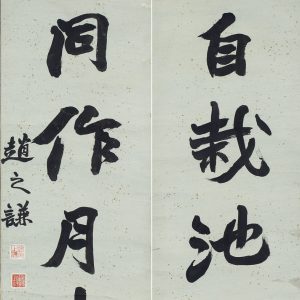 自栽池
同作月
趙之謙